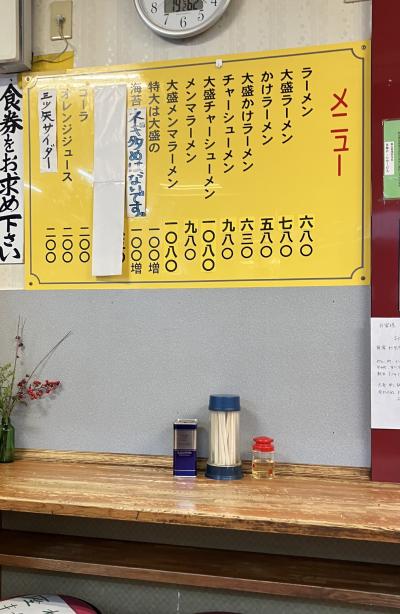 メニュー
ラーメン 六八〇
大盛ラーメン 七八〇
かけラーメン 五八〇
大盛かけラーメン 六三〇
チャーシューメン 九八〇
大盛チャーシューメン 一〇八〇
メンマラーメン 九八〇
大盛メンマラーメン 一〇八〇
特大は大盛の 一〇〇増
海苔 一〇〇増
コーラ 二〇〇
オレンジジュース 二〇〇
三ツ矢サイダー 二〇〇
食券をお求め下さい